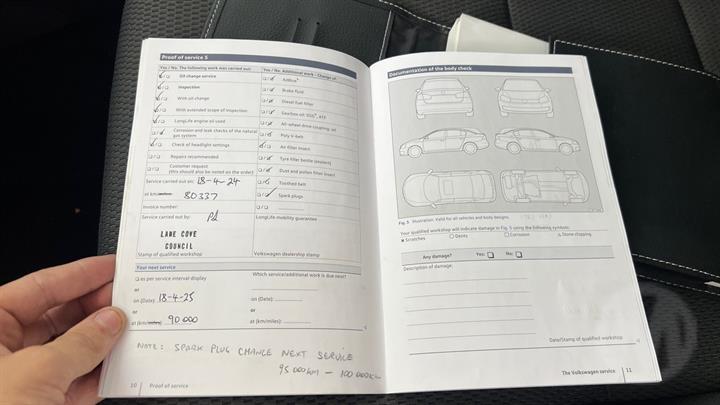 Proof of service 5
Yes / No: The following work was carried out:
Oil change service
Inspection
With oil change
With extended scope of inspection
LongLife engine oil used
Corrosion and leak checks of the natural
gas system
Check of headlight settings
Repairs recommended
Customer request
(this should also be noted on the order)
Service carried out on: 18-4-24
at km/miles: 80337
Invoice number:
Service carried out by: PL
LANE COVE
COUNCIL
Stamp of qualified workshop
Yes / No: Additional work - Change of:
AdBlue®
Brake fluid
Diesel fuel filter
Gearbox oil: DSG®, ATF
All-wheel-drive coupling: oil
Poly V-belt
Air filter insert
Tyre filler bottle (sealant)
Dust and pollen filter insert
Toothed belt
Spark plugs
LongLife mobility guarantee
Volkswagen dealership stamp
Your next service
as per service interval display
or
on (Date): 18-4-25
or
at (km/miles): 90000
Which service/additional work is due next?
on (Date):
or
at (km/miles):
NOTE: SPARK PLUG CHANGE NEXT SERVICE
95000KM - 100000KM
10 Proof of service
Documentation of the body check
Fig. 5 Illustration: Valid for all vehicles and body designs.
Your qualified workshop will indicate damage in Fig. 5 using the following symbols:
Scratches Dents Corrosion Stone chipping
Any damage? Yes: No:
Description of damage:
Date/Stamp of qualified workshop
The Volkswagen service 11